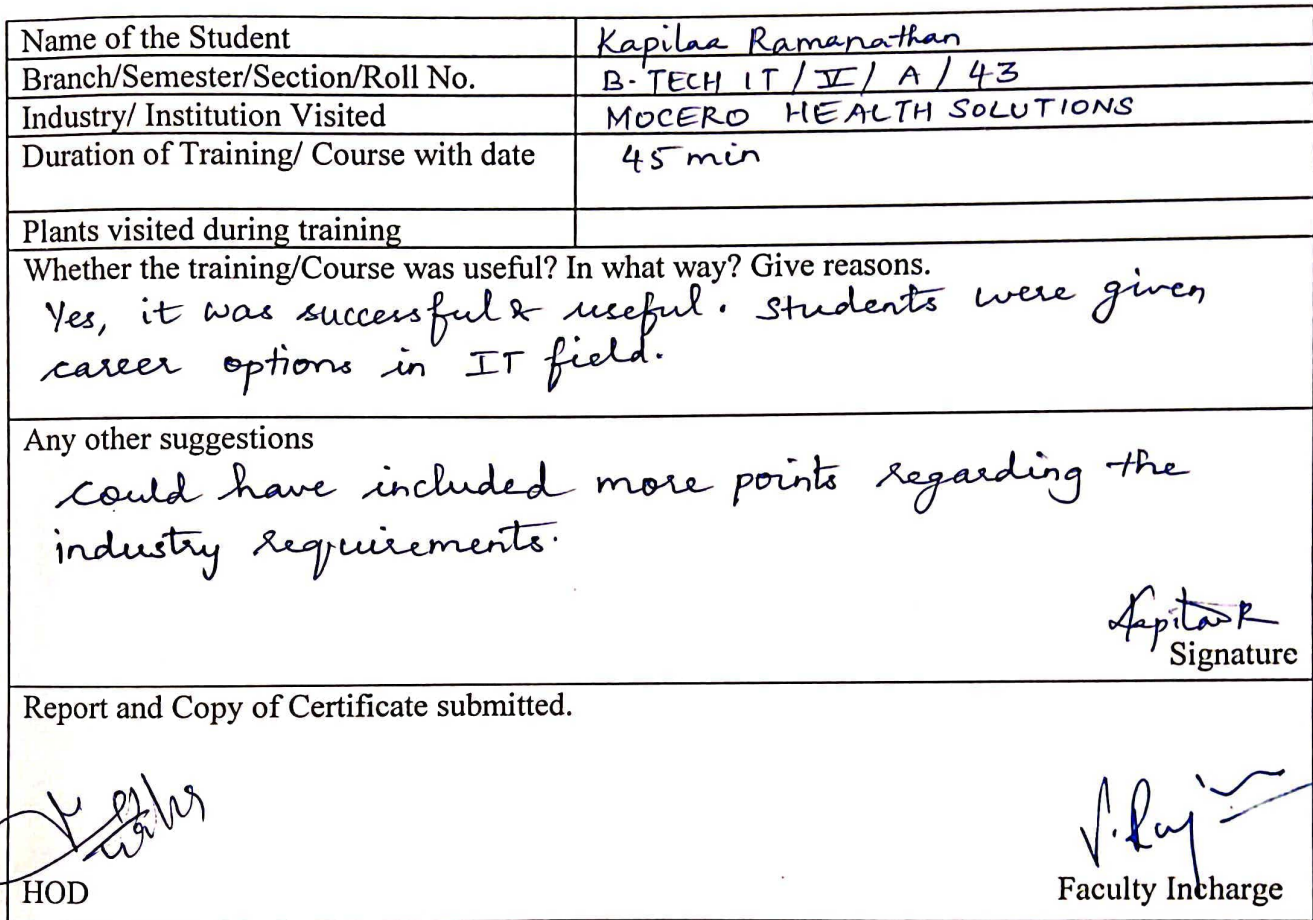 Name of the Student Kapilaa Ramanathan
Branch/Semester/Section/Roll No. B-TECH IT / IV / A / 43
Industry/ Institution Visited MOCERO HEALTH SOLUTIONS
Duration of Training/ Course with date 45 min
Plants visited during training
Whether the training/Course was useful? In what way? Give reasons.
Yes, it was successful & useful. Students were given
career options in IT field.
Any other suggestions
could have included more points regarding the
industry requirements.
KapilaaR
Signature
Report and Copy of Certificate submitted.
HOD
Faculty Incharge